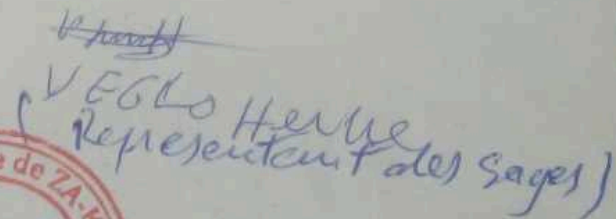 VEGLO Herve
(Representant des Sages)
e de ZA-K